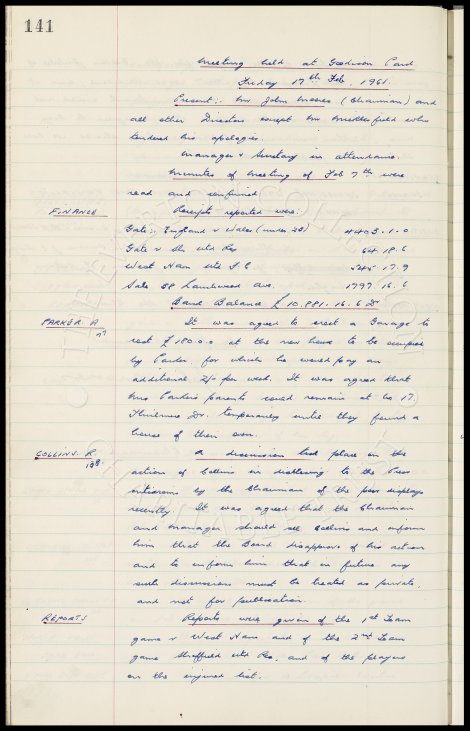 141
Meeting held at Goodison Park
Friday 17th Feb. 1961.
Present:- Mr John Moores (Chairman) and
all other Directors except Mr Micklesfield who
tendered his apologies.
Manager & Secretary in attendance.
Minutes of Meeting of Feb 7th were
read and confirmed
FINANCE
Receipts reported were:-
Gate: England v Wales (under 23) 4403. 1. 0
Gate v Sh. Utd Res 64. 18. 6
West Ham Utd F.C 545. 17. 9
Sale 58 Lauriewood Ave. 1797. 16. 6
Bank Balance £10,881. 16. 6 Dr
PARKER. A
It was agreed to erect a Garage to
cost £180.0.0 at the new house to be occupied
by Parker for which he would pay an
additional 2/- per week. It was agreed that
Mrs Parker's parents could remain at No 17.
Dr. temporarily until they found a
house of their own.
COLLINS. R.
188.
A discussion took place on the
action of Collins in disclosing to the Press
criticisms by the Chairman of the poor displays
recently. It was agreed that the Chairman
and Manager should see Collins and inform
him that the Board disapprove of his action
and to inform him that in future any
such discussions must be treated as private.
and not for publication.
REPORTS
Reports were given of the 1st Team
game v West Ham and of the 2nd Team
game Sheffield Utd Res, and of the players
on the injured list.